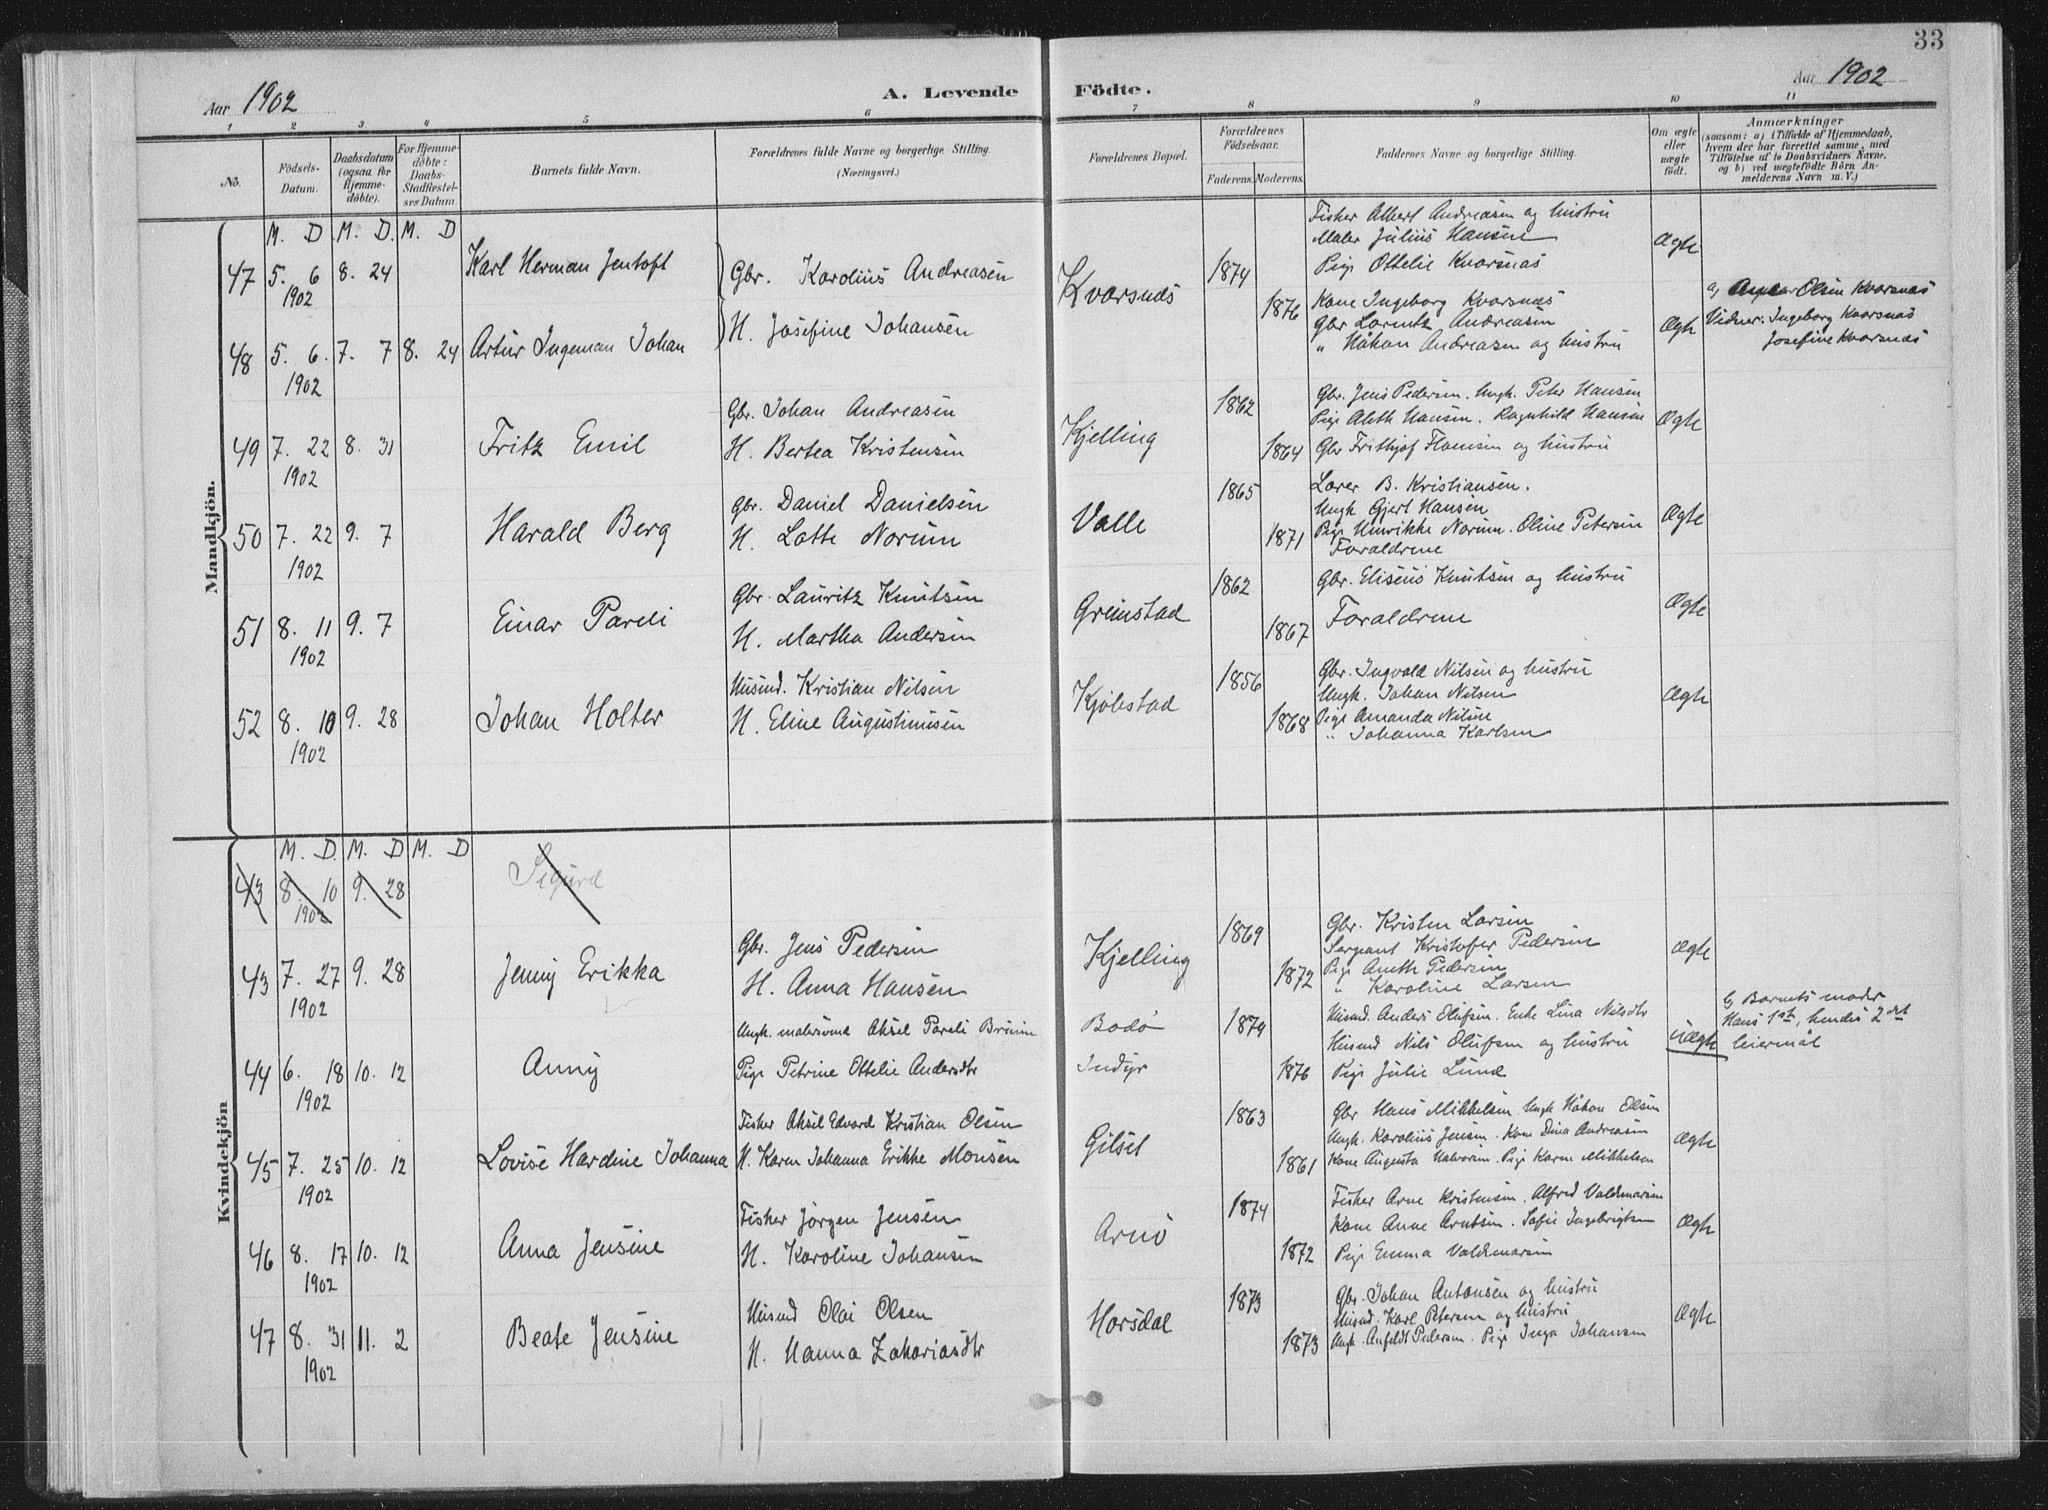 33
Aar 1902
A. Levende Födte.
Aar 1902
1 2 3 4 5 6 7 8 9 10 11
No.
Födsels-Datum.
Daabsdatum (ogsaa for Hjemme-döbte).
For Hjemme-döbte: Daabs-Stadfestel-ses Datum.
Barnets fulde Navn.
Forældrenes fulde Navne og borgerlige Stilling. (Næringsvei.)
Forældrenes Bopæl.
Forældrenes Födselsaar.
Faderens. Moderens.
Faddernes Navne og borgerlige Stilling.
Om ægte eller uægte födt.
Anmærkninger
(saasom: a) i Tilfælde af Hjemmedaab, hvem der har forrettet samme, med Tilföielse af to Daabsvidners Navne, og b) ved uægtefödte Börn Anmelderens Navn m. V.)
Mandkjön.
M. D M. D. M. D
47 5. 6 1902 8. 24 Karl Herman Jentoft
Gbr. Karolius Andreasen
H. Josefine Johansen
Kvarsnes 1874 1876
Fisker Albert Andreasen og hustru
Maler Julius Hansen
Pige Ottelie Kvarsnæs
Ægte
48 5. 6. 1902 7. 7 8. 24 Artur Ingeman Johan
Kone Ingeborg Kvarsnæs
Gbr Lorentz Andreasen
" Håkon Andreasen og hustru
Ægte
a, Olsen Kvarsnæs
Vidner: Ingeborg Kvarsnæs
Josefine Kvarsnæs
49 7. 22 1902 8. 31 Fritz Emil
Gbr. Johan Andreasen
H. Bertea Kristensen
Kjelling 1862 1864
Gbr. Jens Pedersen. Ungk. Peter Hansen
Pige Aleth Hansen. Ragnhild Hansen
Gbr Frithjof Hansen og hustru
Ægte
50 7. 22 1902 9. 7 Harald Berg
Gbr. Daniel Danielsen
H. Lotte Norum
Valle 1865 1871
Lærer B. Kristiansen.
Ungk Gjert Hansen
Pige Henrikke Norum. Oline Petersen
Forældrene
Ægte
51 8. 11 1902 9. 7 Einar Pareli
Gbr. Lauritz Knutsen
H. Martha Andersen
Grimstad 1862 1867
Gbr. Eliseus Knutsen og hustru
Forældrene
Ægte
52 8. 10 1902 9. 28 Johan Holter
Husmd. Kristian Nilsen
H. Eline Augustinusen
Kjölestad 1856 1868
Gbr. Ingvald Nilsen og hustru
Ungk. Johan Nilsen
Pige Amanda Nilsen
" Johanna Karlsen
Ægte
Kvindekjön
M. D. M. D M. D
43 8. 10 1902 9. 28 Sigurd
43 7. 27 1902 9. 28 Jenny Erikka
Gbr. Jens Pedersen
H. Anna Hansen
Kjelling 1869 1872
Gbr. Kristen Larsen
Sergeant Kristofer Pedersen
Pige Aneth Pedersen
" Karoline Larsen
Ægte
44 6. 18 1902 10. 12 Anny
Ungk. malersvend Aksel Pareli Bruun
Pige Petrine Ottelie Andersdtr
Bodø
Indyr
1879 1876
Husmd. Anders Olufsen. Enke Lina Nilsdtr
Husmd Nils Olufsen og hustru
Pige Julie Lund
Uægte
b, Barnets moder
Hans 1st, hendes 2det
leiermål
45 7. 25 1902 10. 12 Lovise Hardine Johanna
Fisker Aksel Edvard Kristian Olsen
H. Karen Johanna Erikke Monsen
Gilset 1863 1861
Gbr Hans Mikkelsen. Ungk Håkon Olsen
Ungk. Karolius Jensen. Kone Dina Andreasen
Kone Augusta Halvorsen. Pige Karen Mikkelsen
Ægte
46 8. 17 1902 10. 12 Anna Jensine
Fisker Jörgen Jensen
H. Karoline Johansen
Arnö 1874 1872
Fisker Arne Kristensen. Alfred Valdemarsen
Kone Anne Arntsen. Sofie Ingebrigtsen
Pige Emma Valdemarsen
Ægte
47 8. 31 1902 11. 2 Beate Jensine
Husmd Olai Olsen
H. Hanna Zakariasdtr
Horsdal 1873 1873
Gbr. Johan Antonsen og hustru
Husmd. Karl Petersen og hustru
Ungk. Anfeldt Pedersen. Pige Inga Johansen
Ægte